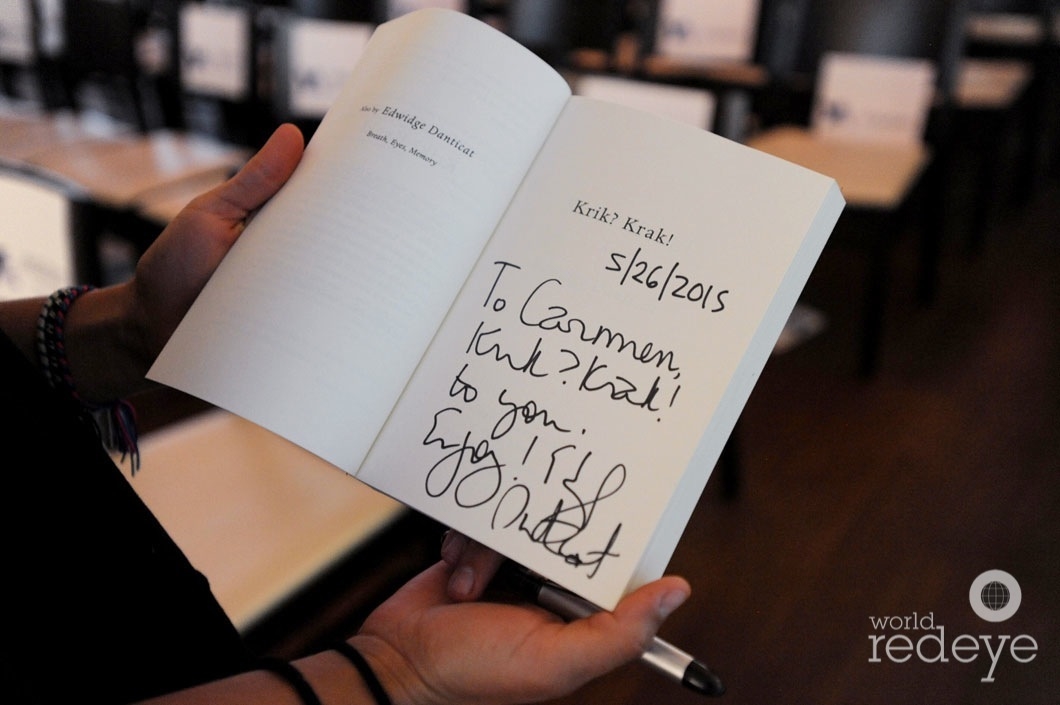 Also by Edwidge Danticat
Breath, Eyes, Memory
Krik? Krak!
5/26/2015
To Carmen,
Krik? Krak!
to you.
Enjoy!
world
redeye